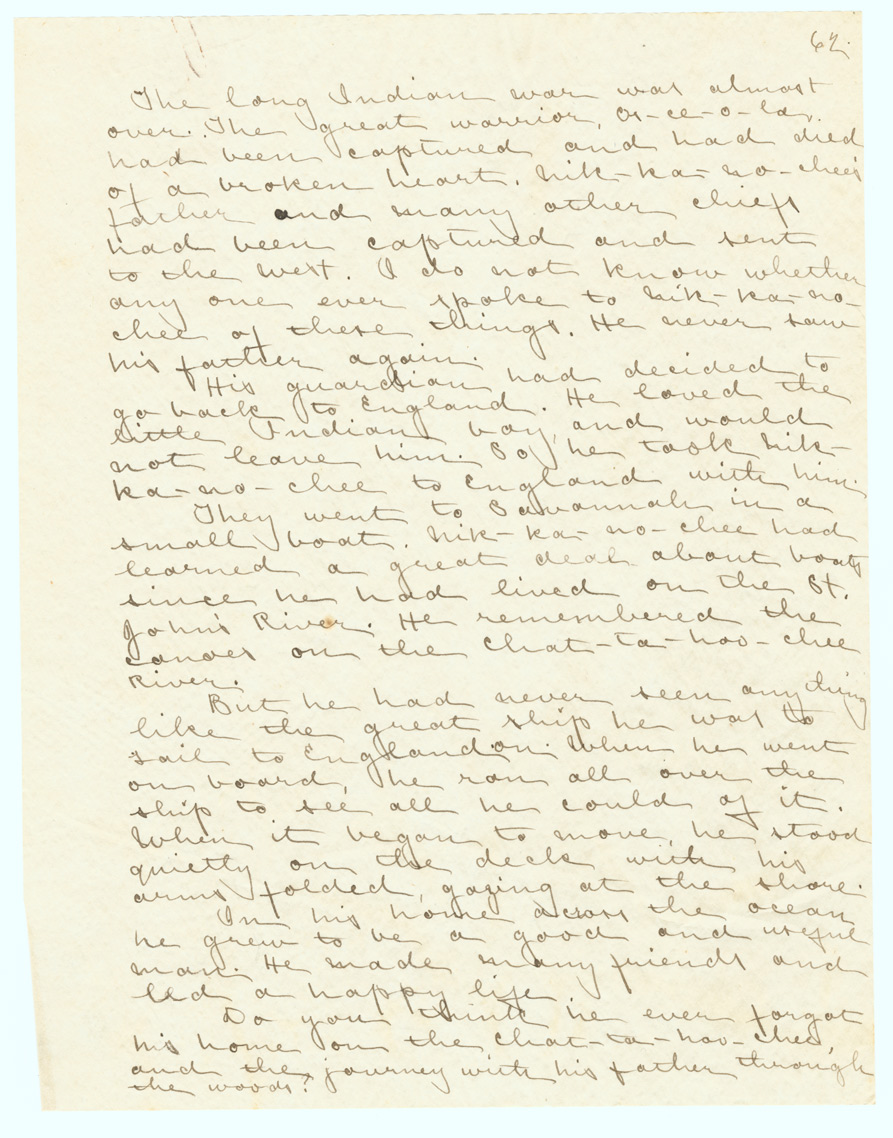 62.
The long Indian war was almost
over. The great warrior, Os-ce-o-la,
had been captured and had died
of a broken heart. Nik-ka-no-chee's
father and many other chiefs
had been captured and sent
to the west. I do not know whether
any one ever spoke to Nik-ka-no-
chee of these things. He never saw
his father again.
His guardian had decided to
go back to England. He loved the
little Indian boy, and would
not leave him. So, he took Nik-
ka-no-chee to England with him.
They went to Savannah in a
small boat. Nik-ka-no-chee had
learned a great deal about boats
since he had lived on the St.
John's River. He remembered the
canoes on the Chat-ta-hoo-chee
River.
But he had never seen anything
like the great ship he was to
sail to England on. When he went
on board, he ran all over the
ship to see all he could of it.
When it began to move, he stood
quietly on the deck with his
arms folded, gazing at the shore.
In his home across the ocean
he grew to be a good and useful
man. He made many friends and
led a happy life.
Do you think he ever forgot
his home on the Chat-ta-hoo-chee,
and the journey with his father through
the woods?